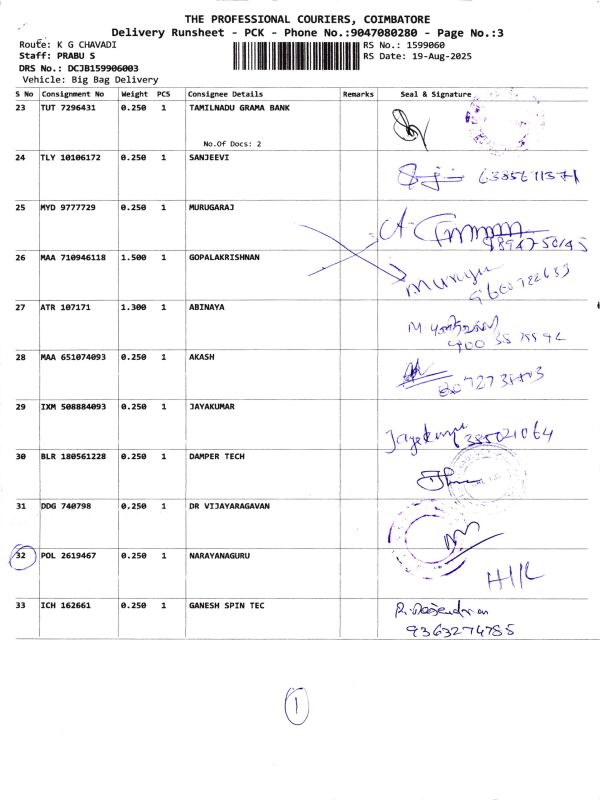 THE PROFESSIONAL COURIERS, COIMBATORE
Delivery Runsheet - PCK - Phone No.:9047080280 - Page No.:3
Route: K G CHAVADI RS No.: 1599060
Staff: PRABU S RS Date: 19-Aug-2025
DRS No.: DCJB159906003
Vehicle: Big Bag Delivery
S No Consignment No Weight PCS Consignee Details Remarks Seal & Signature
23 TUT 7296431 0.250 1 TAMILNADU GRAMA BANK
No.Of Docs: 2
24 TLY 10106172 0.250 1 SANJEEVI
25 MYD 9777729 0.250 1 MURUGARAJ
26 MAA 710946118 1.500 1 GOPALAKRISHNAN
27 ATR 107171 1.300 1 ABINAYA
28 MAA 651074093 0.250 1 AKASH
29 IXM 508884093 0.250 1 JAYAKUMAR
30 BLR 180561228 0.250 1 DAMPER TECH
31 DDG 740798 0.250 1 DR VIJAYARAGAVAN
32 POL 2619467 0.250 1 NARAYANAGURU
H/L
33 ICH 162661 0.250 1 GANESH SPIN TEC
9363274785
1